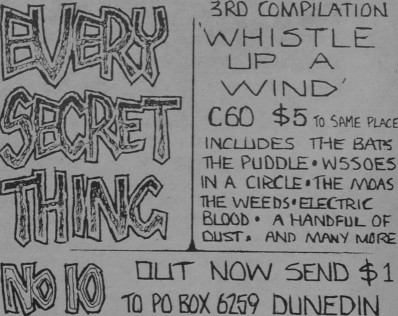 EVERY
SECRET
THING
3RD COMPILATION
'WHISTLE
UP A
WIND'
C60 $5 TO SAME PLACE
INCLUDES THE BATS
THE PUDDLE • WSSOES
IN A CIRCLE • THE MOAS
THE WEEDS • ELECTRIC
BLOOD • A HANDFUL OF
DUST • AND MANY MORE
NO 10
OUT NOW SEND $1
TO PO BOX 6259 DUNEDIN